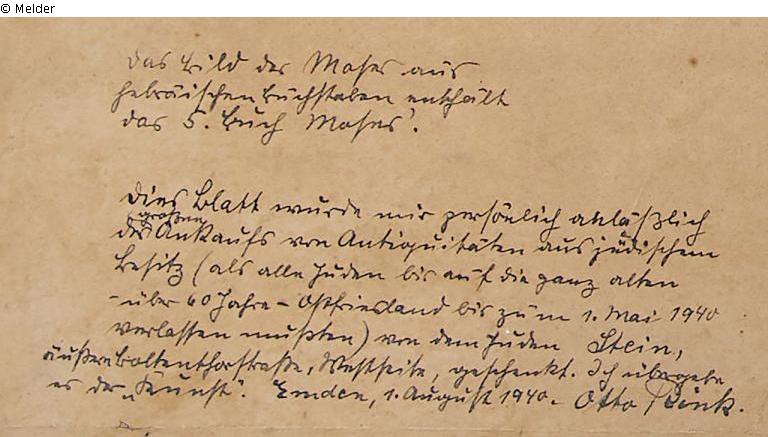 © Melder
Das Bild des Moses aus
hebräischen Buchstaben enthält
das 5. Buch Moses'.
Dies Blatt wurde mir persönlich anläßlich
großen
des Ankaufs von Antiquitäten aus jüdischem
Besitz (als alle Juden bis auf die ganz alten
- über 60 Jahre - Ostfriesland bis zum 1. Mai 1940
verlassen mußten) von dem Juden Stein,
äußere Boltenthorstraße, Westseite, geschenkt. Ich übergebe
es der „Kunst". Emden, 1. August 1940. Otto Rink.